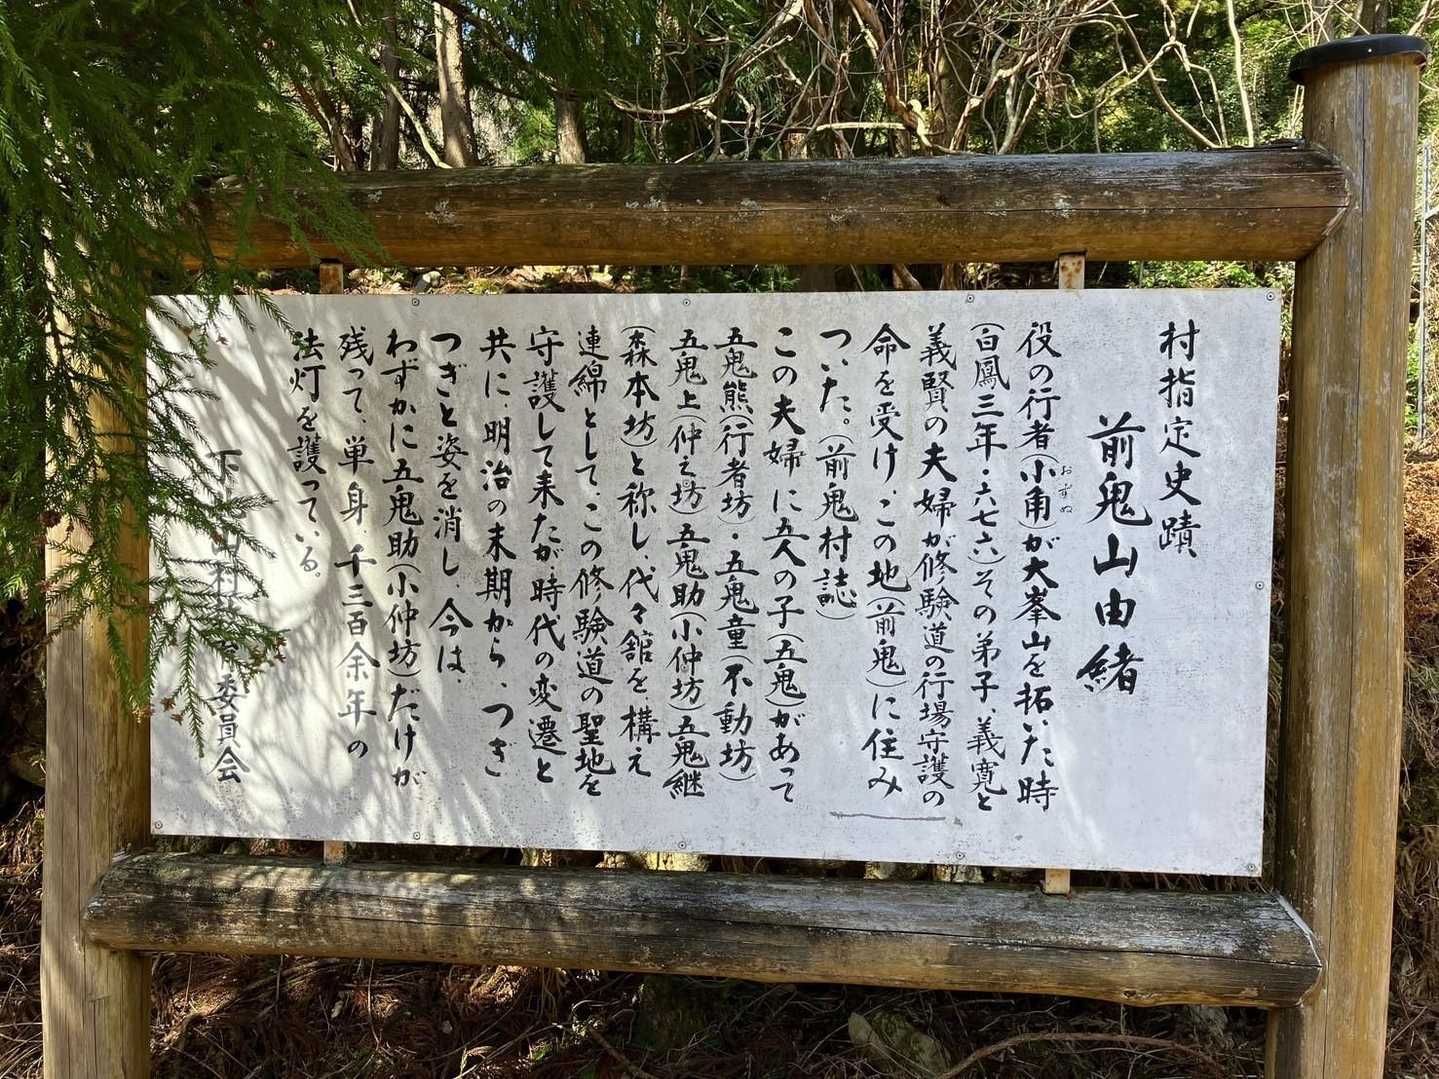 村指定史蹟
前鬼山由緒
役の行者(小角)が大峯山を拓いた時
おずぬ
(白鳳三年・六七六)その弟子、義寛と
義賢の夫婦が修験道の行場守護の
命を受け、この地(前鬼)に住み
ついた。(前鬼村誌)
この夫婦に五人の子(五鬼)があって
五鬼熊(行者坊)・五鬼童(不動坊)
五鬼上(仲之坊)五鬼助(小仲坊)五鬼継
(森本坊)と称し、代々館を構え
連綿として、この修験道の聖地を
守護して来たが、時代の変遷と
共に、明治の末期から、つぎ
つぎと姿を消し、今は、
わずかに五鬼助(小仲坊)だけが
残って、単身、千三百余年の
法灯を護っている。
下北山村教育委員会